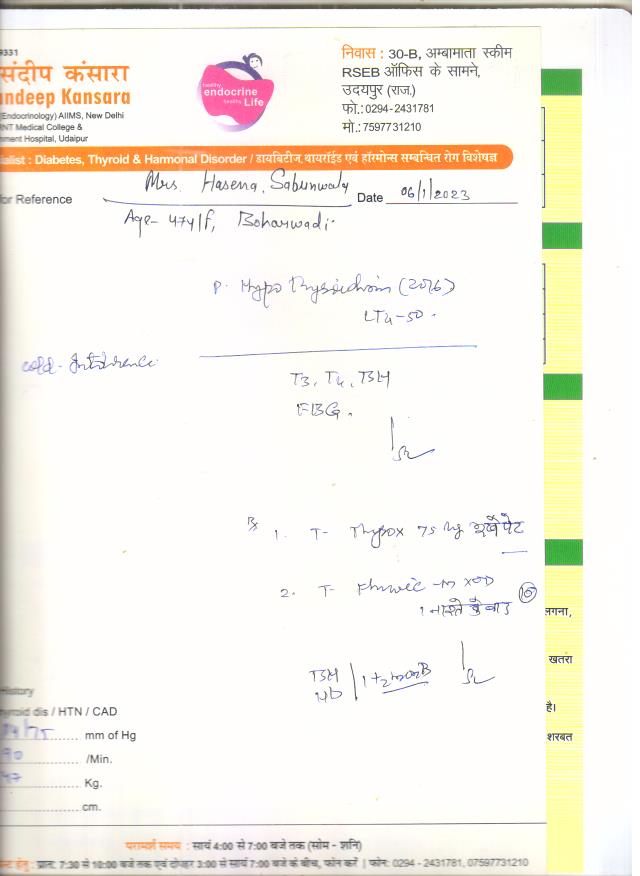 9331
संदीप कंसारा
ndeep Kansara
Endocrinology) AIIMS, New Delhi
RNT Medical College &
nment Hospital, Udaipur
healthy
endocrine
healthy Life
निवास : 30-B, अम्बामाता स्कीम
RSEB ऑफिस के सामने,
उदयपुर (राज.)
फो.:0294-2431781
मो.:7597731210
ialist : Diabetes, Thyroid & Harmonal Disorder / डायबिटीज, थायरॉईड एवं हॉरमोन्स सम्बन्धित रोग विशेषज्ञ
Mrs. Hasena, Sabunwala
for Reference
Date 06/1/2023
Age- 47y/f, Boharwadi.
P. Hypothyroidism (2016)
LT4-50.
Cold-Intolerance
T3, T4, TSH
FBG.
Rx 1. T- Thyrox 75 खाली पेट
2. T- XOD
1 नाश्ते के बाद
10
TSH
Hb
लगना,
खतरा
है।
शरबत
History
hyroid dis / HTN / CAD
/75 mm of Hg
90 /Min.
47 Kg.
cm.
परामर्श समय : सायं 4:00 से 7:00 बजे तक (सोम - शनि)
न्ट हेतु : प्रातः 7:30 से 10:00 बजे तक एवं दोपहर 3:00 से सायं 7:00 बजे के बीच, फोन करें | फोन: 0294 - 2431781, 07597731210